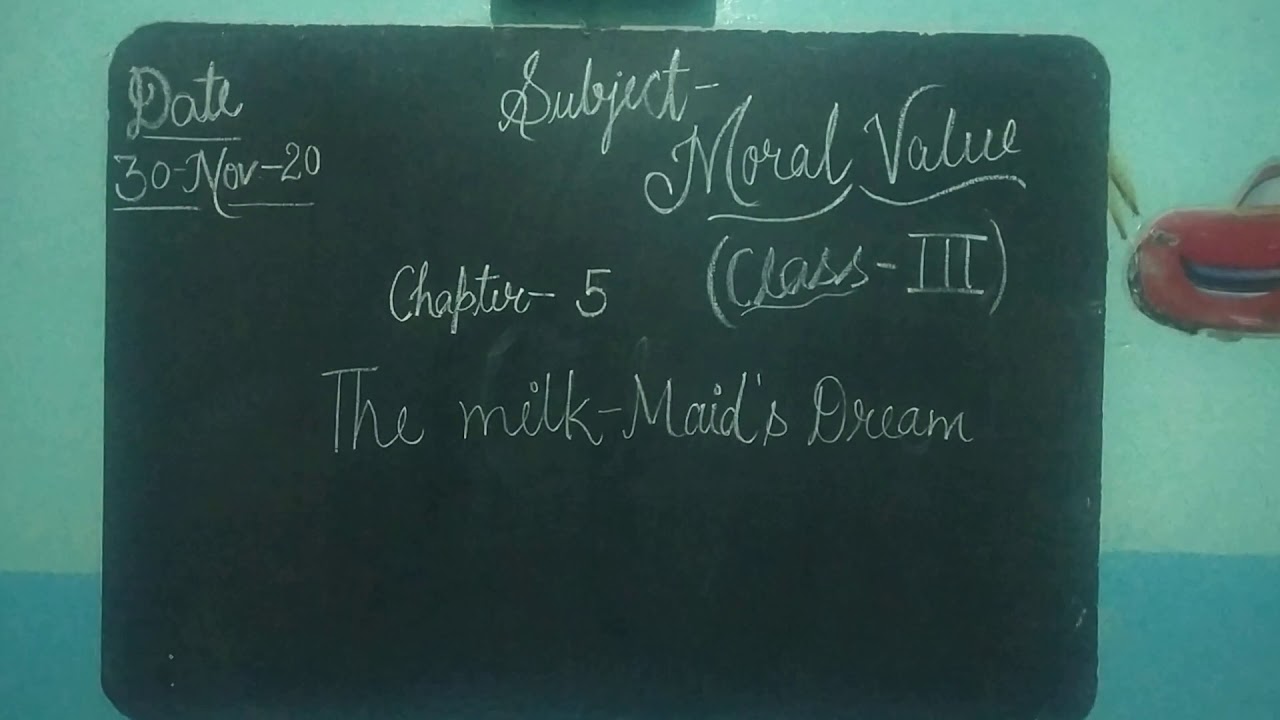 Date
30-Nov-20
Subject-
Moral Value
(Class-III)
Chapter- 5
The milk-Maid's Dream